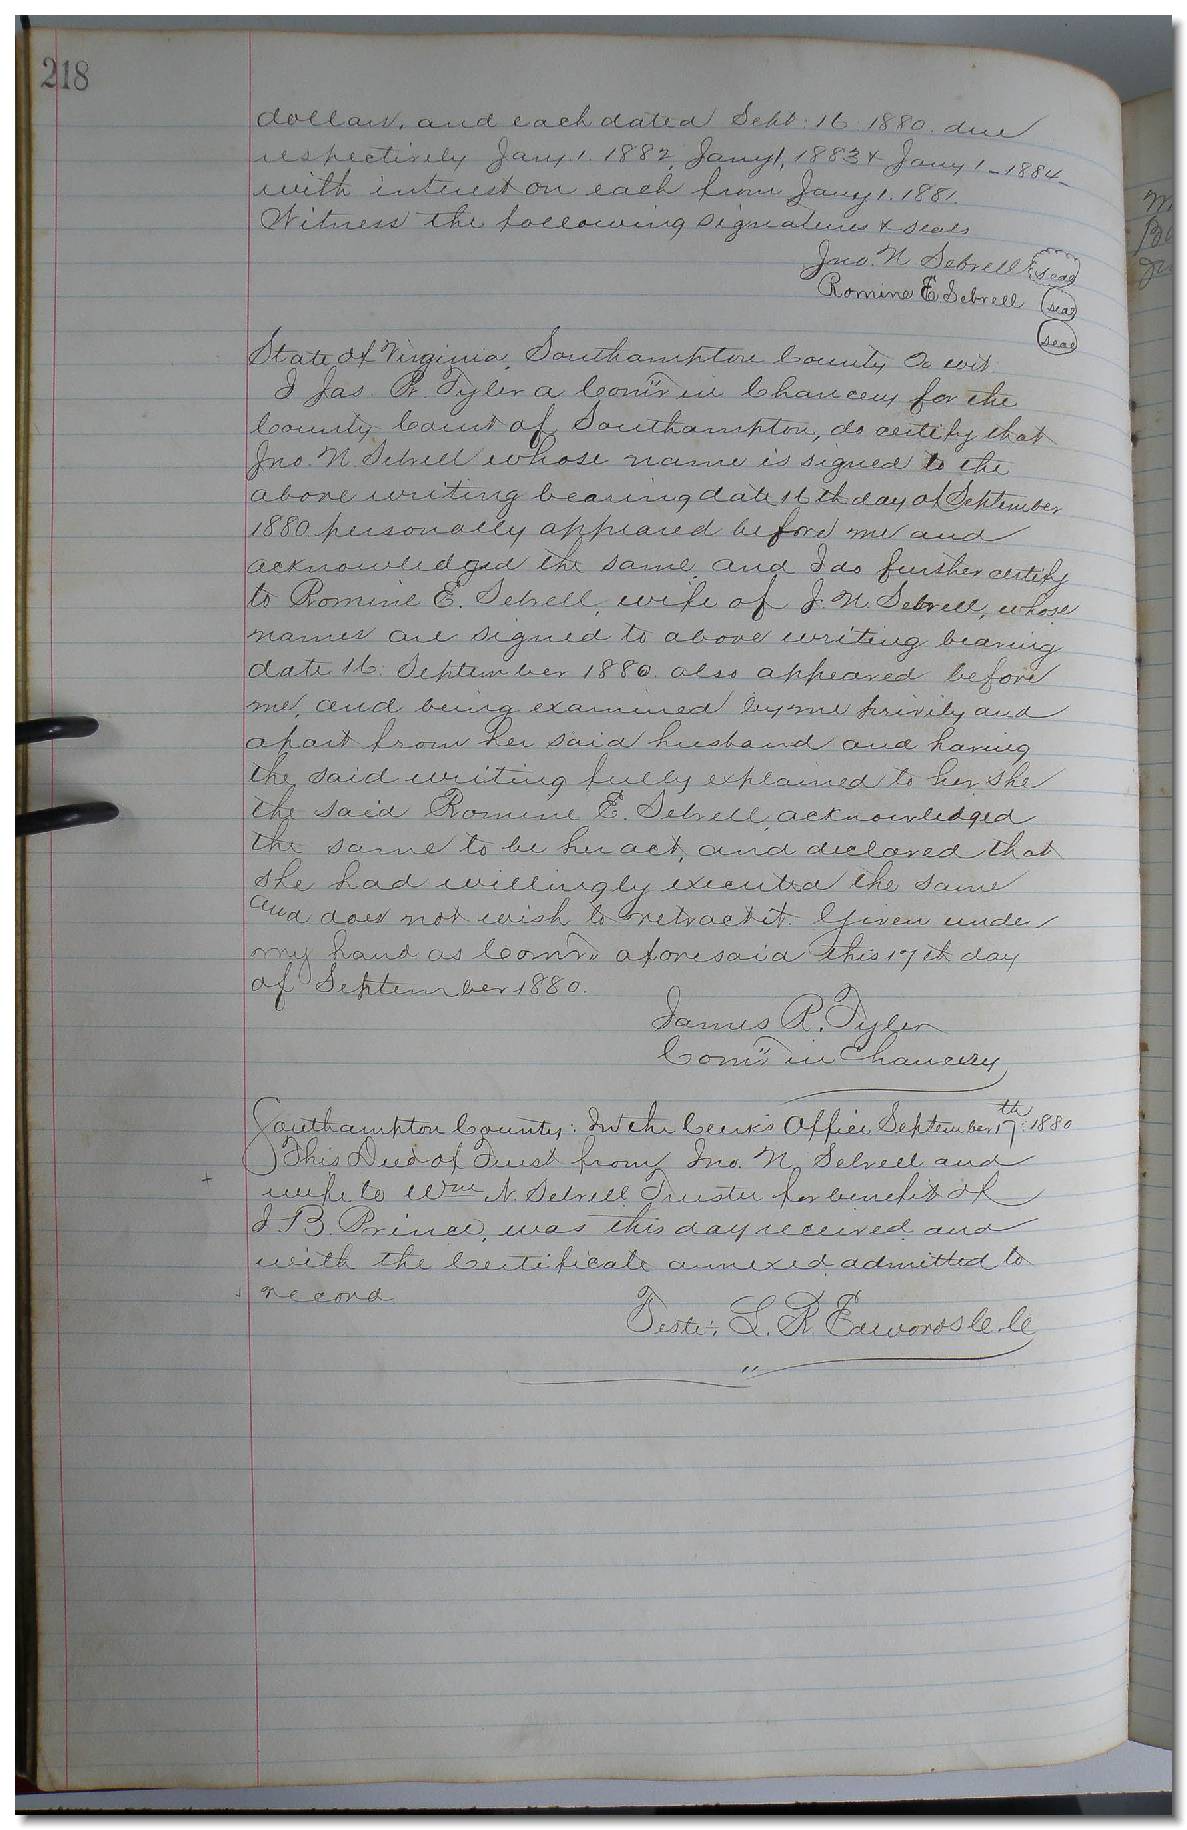 218
dollars, and each dated Sept. 16 1880. due
respectively Jany 1. 1882, Jany 1, 1883 & Jany 1 - 1884 -
with interest on each from Jany 1. 1881.
Witness the following signatures & seals
Jno. N Sebrell seal
Romine E. Sebrell seal
seal
State of Virginia, Southampton County To wit.
I Jas. R. Tyler a Comr in Chancery for the
County Court of Southampton, do certify that
Jno. N Sebrell whose name is signed to the
above writing bearing date 16th day of September
1880 personally appeared before me and
acknowledged the same and I do further certify
to Romine E. Sebrell, wife of J. N. Sebrell, whose
names are signed to above writing bearing
date 16. September 1880. also appeared before
me, and being examined by me privily and
apart from her said husband and having
the said writing fully explained to her she
the said Romine E. Sebrell, acknowledged
the same to be her act, and declared that
she had willingly executed the same
and does not wish to retract it. Given under
my hand as Comr. aforesaid this 17th day
of September 1880.
James R. Tyler
Comr in Chancery
Southampton County: In the Clerk's Office September 17th 1880
This Deed of Trust from Jno. N. Sebrell and
wife to Wm N. Sebrell Trustee for benefit of
J. B. Prince, was this day received and
with the Certificate annexed admitted to
record
Teste:, L. R. Edwards C. C